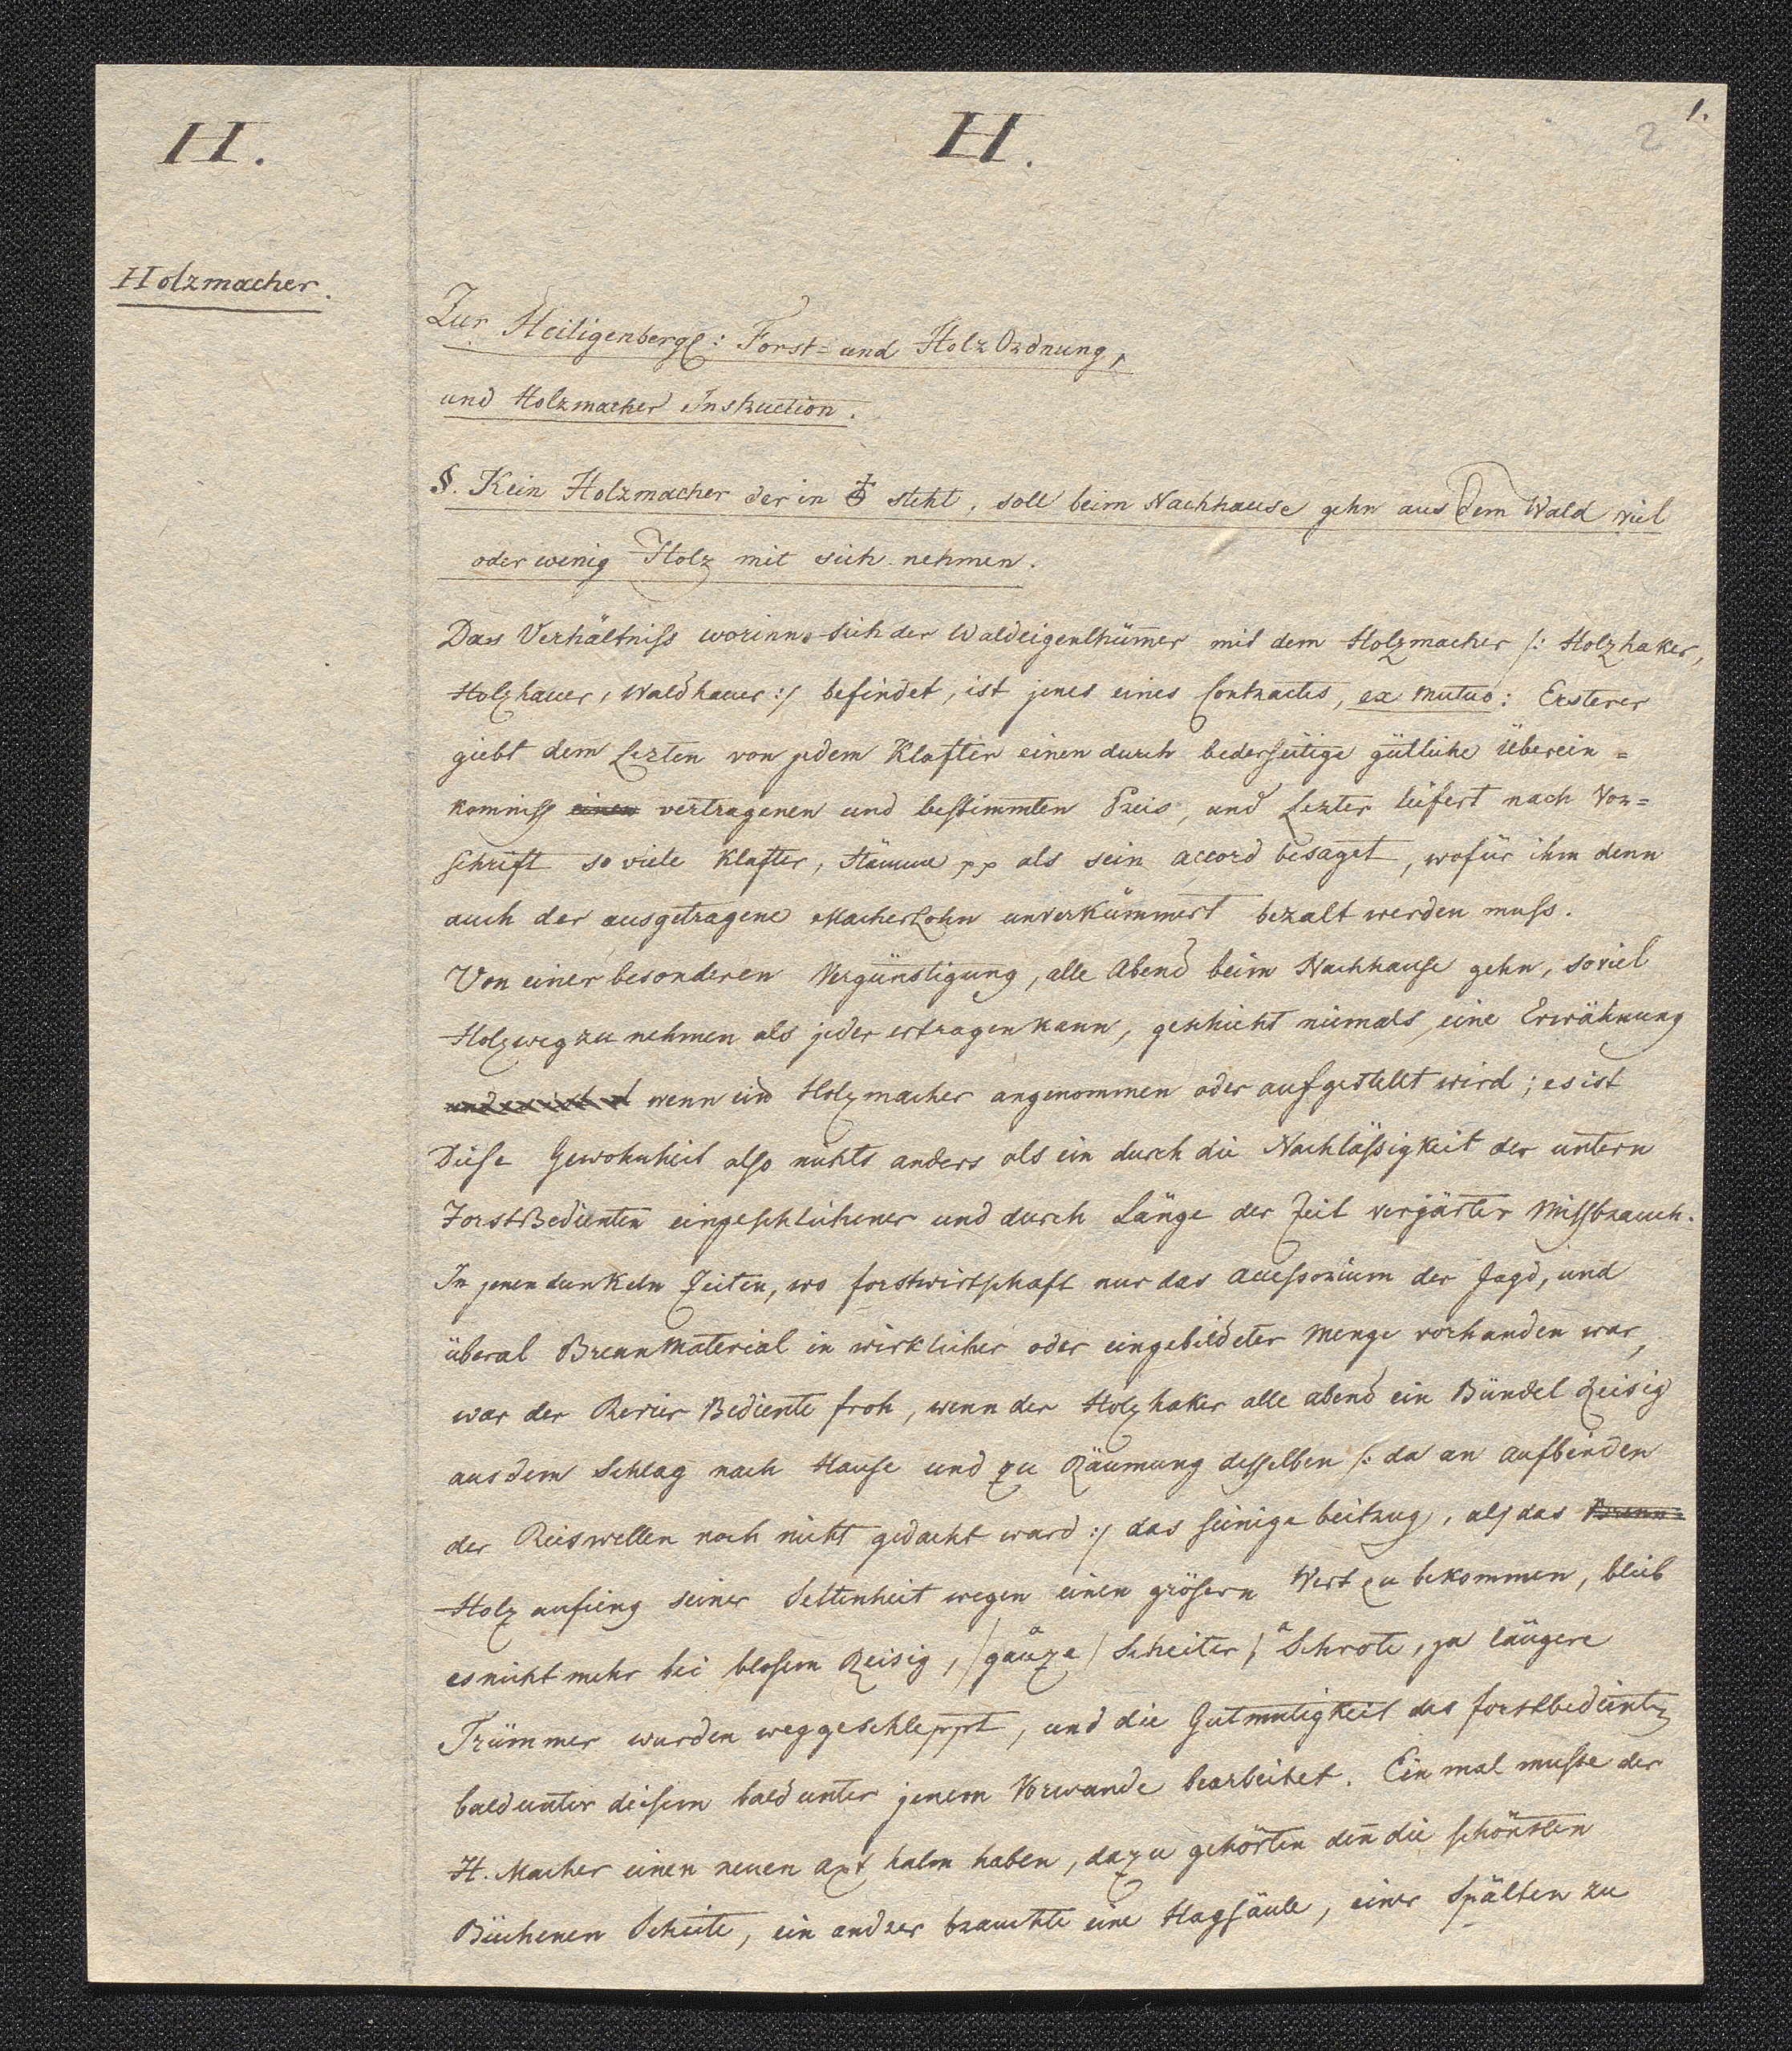 H.
H.
1.
2
Holzmacher.
Zur Heiligenbergl: Forst= und HolzOrdnung,
und Holzmacher Instruction.
§. Kein Holzmacher der in ♁ steht, soll beim Nachhause gehn aus dem Wald viel
oder wenig Holz mit sich nehmen.
Das Verhältniss worinne sich der Waldeigenthümer mit dem Holzmacher /: Holzhaker,
Holzhauer, Waldhauer :/ befindet, ist jenes eines Contractes, ex mutuo: Ersterer
giebt dem Lezten von jedem Klafter einen durch bederseitige gütliche Überein=
komniss einen vertragenen und bestimmten Preis, und Lezter liefert nach Vor=
schrift so viele Klafter, Stämme pp als sein accord besaget, wofür ihm denn
auch der ausgetragene MacherLohn unverkümmert bezalt werden muss.
Von einer besonderen Vergünstigung, alle Abend beim Nachhause gehn, soviel
Holz weg zu nehmen als jeder ertragen kann, geschieht niemals eine Erwähnung
wenn ein Holzmacher angenommen oder aufgestellt wird; es ist
Diese Gewohnheit also nichts anders als ein durch die Nachlässigkeit der untern
ForstBedienten eingeschlichener und durch Länge der Zeit verjärter Missbrauch.
In jenen dunkeln Zeiten, wo forstwirtschaft nur das accessorium der Jagd, und
überal BrennMaterial in wirklicher oder eingebildeter Menge vorhanden war,
war der Revier Bediente froh, wenn der Holzhaker alle abend ein Bündel Reisig
aus dem Schlag nach Hause und zu Räumung desselben /: da an aufbinden
der Reiswellen noch nicht gedacht ward :/ das seinige beitrug, als das Brenn=
Holz anfieng seiner Seltenheit wegen einen grösern Wert zu bekommen, blieb
es nicht mehr bei blosem Reisig, /ganze/ Scheiter, Schrote, ja längere
Trümmer wurden weggeschleppt, und die Gutmutigkeit des forstbedienten
bald unter diesem bald unter jenem Vorwande bearbeitet. Ein mal musste der
H. Macher einen neuen Axt halm haben, dazu gehörten deñ die schönsten
Büchenen Scheite, ein andrer brauchte eine Hagsäule, einer Spälten zu